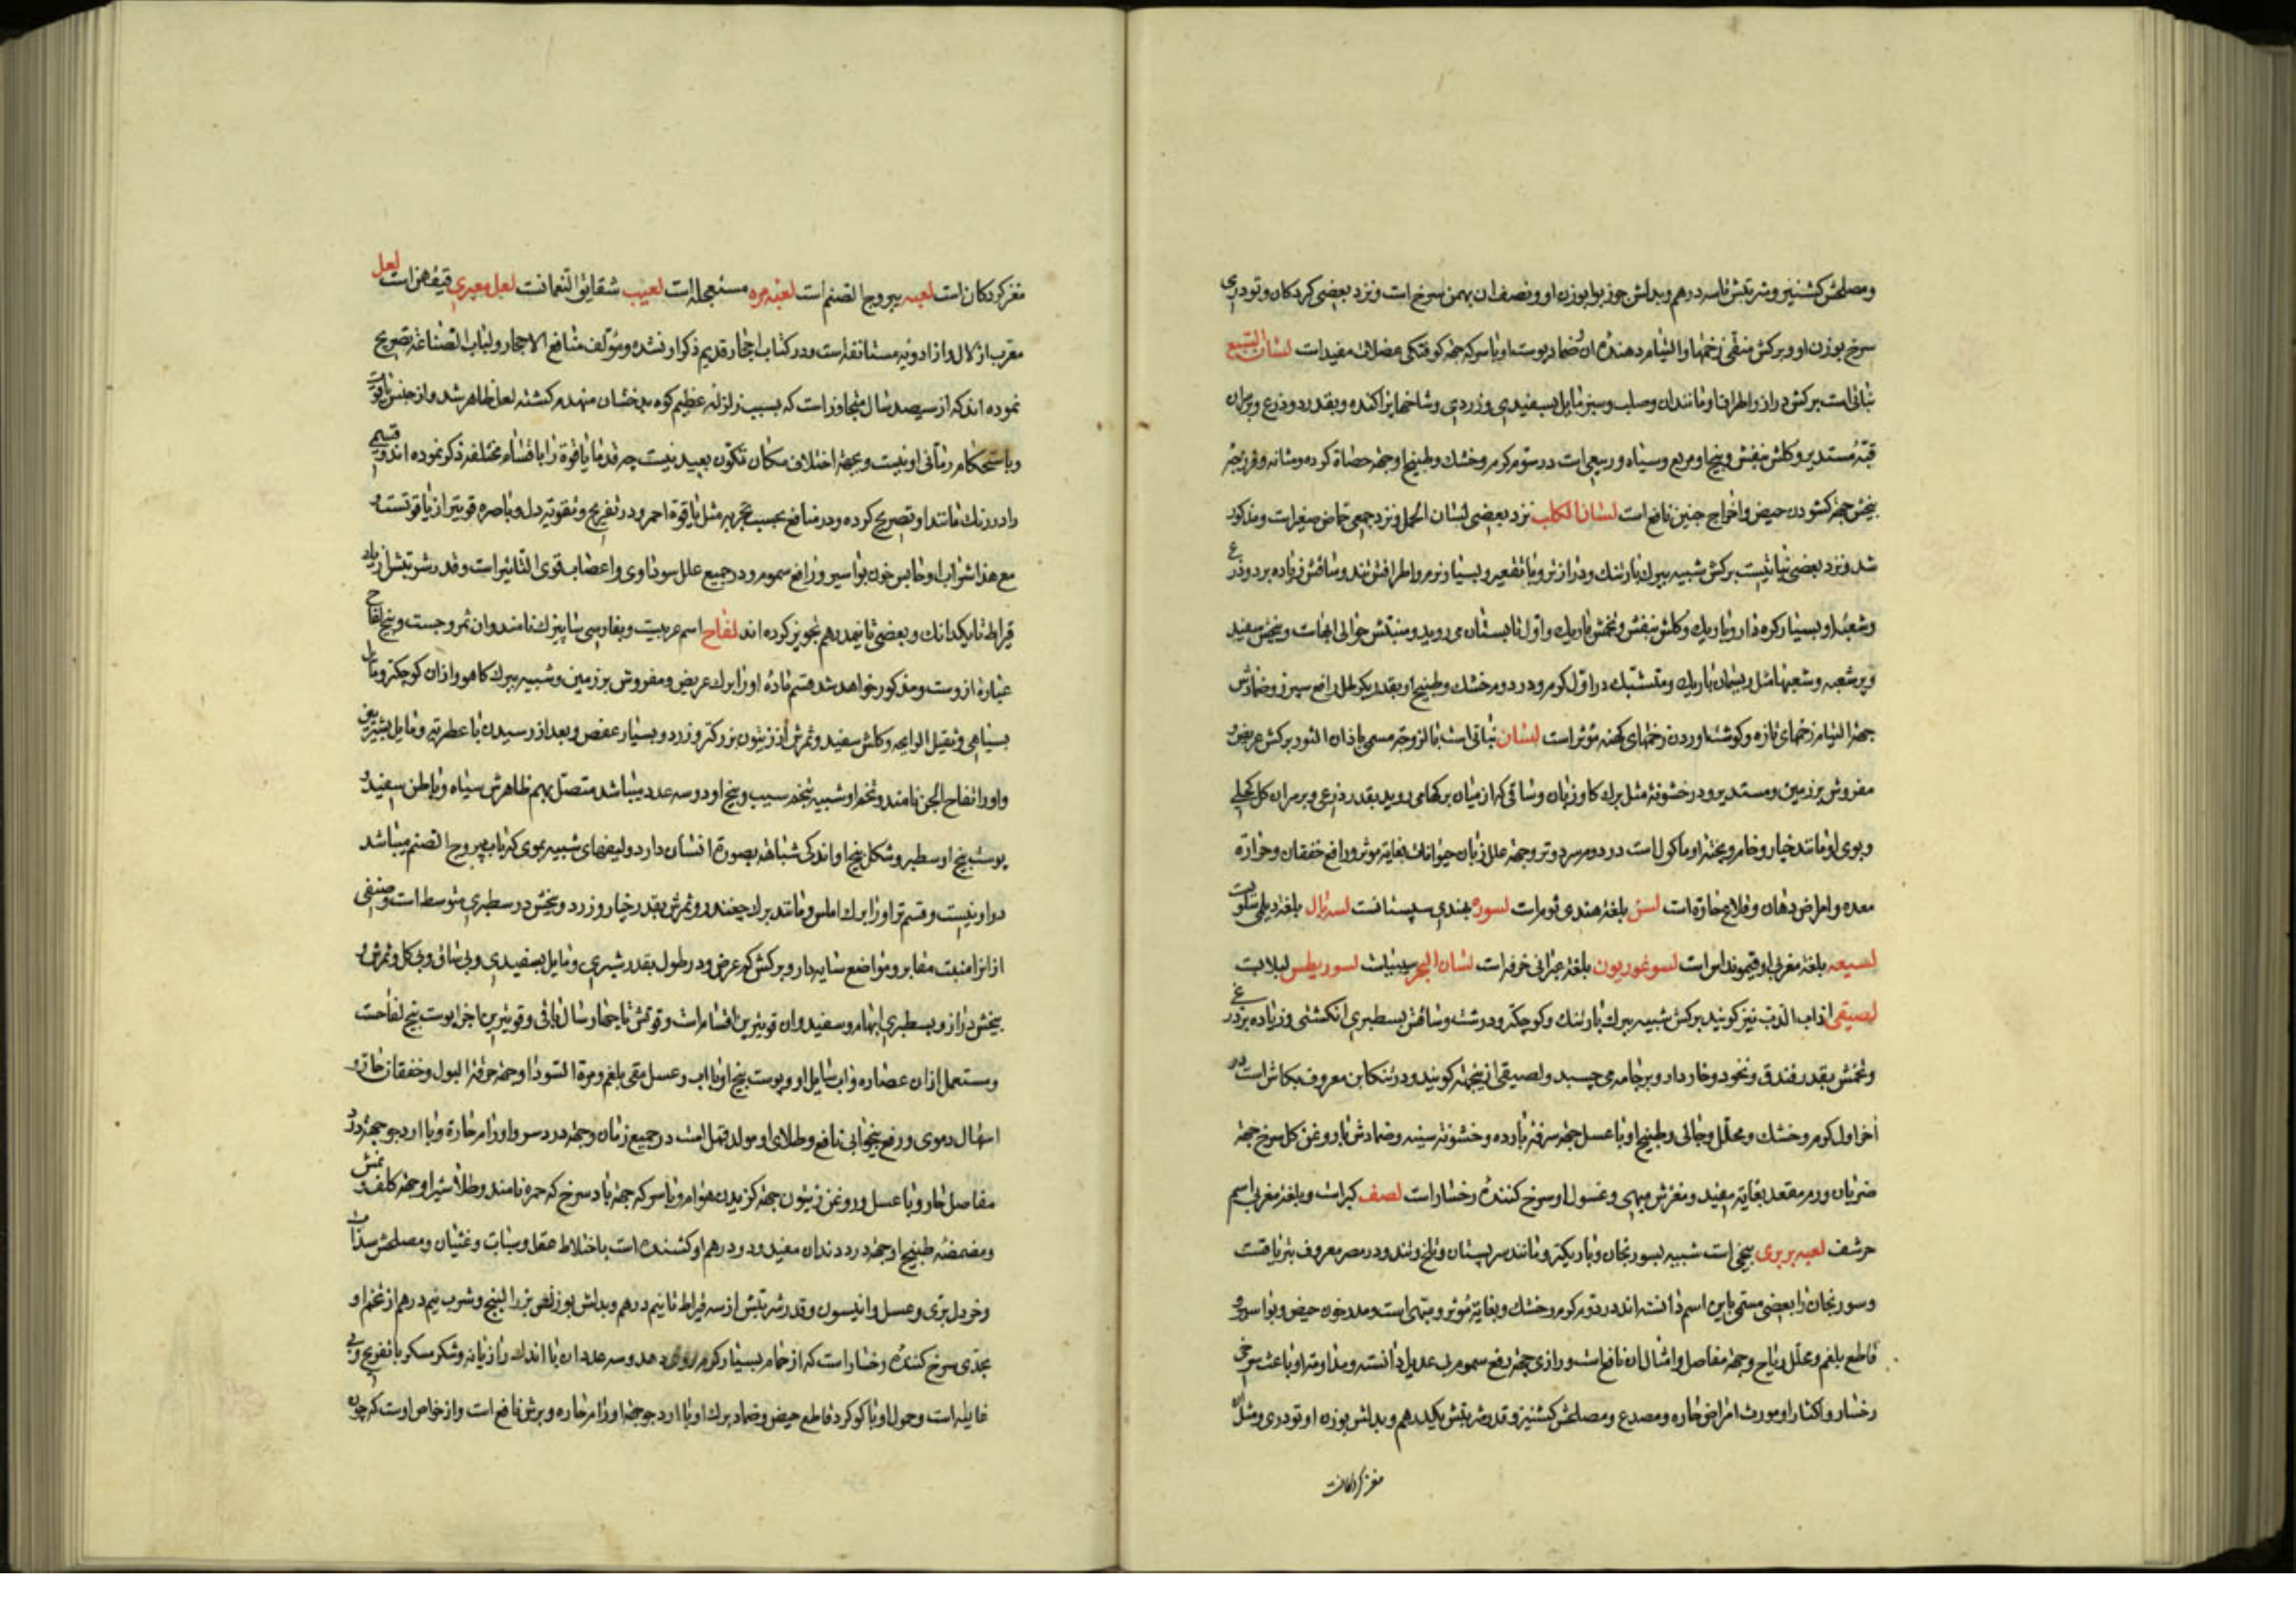 ومصلحش کشنیز و شربتش تا سه درهم و بدلش جوز بوا بوزن او و نصف ان بهمن سرخ است و نزد بعضی کردکان و تودری
سرخ بوزن او و برکش منقی زخمها و التیام دهنده ان و ضماد پوست او با سرکه جهة کوفتکی عضلات مفید است لسان السبع
نباتی است برکش دراز و اطراف او مانند ان و صلب و سبز مایل بسفیدی و زردی و شاخها پراکنده و بقدر دو ذرع و بر سر ان
قبه مستدیر و کلش بنفش و بیخ او مربع و سیاه و ربیعی است در سوم کرم و خشک و طبیخ او جهة حصاة کرده و مثانه و فرزجه
بیخش جهة کشودن حیض و اخراج جنین نافع است لسان الکلب نزد بعضی لسان الحمل و نزد جمعی حماض صغیر است و مذکور
شد و نزد بعضی نباتیست برکش شبیه ببرک بارتنک و درازتر و با تقعیر و بسیار نرم و اطرافش تند و ساقش زیاده بر دو ذرع
و شعبه او بسیار کره دار و باریک و کلش بنفش و تخمش باریک و اول تابستان می روید و منبتش حوالی ابهاست و بیخش سفید
و پر شعبه و شعبها مثل ریسمان باریک و متشبک در اول کرم و در دوم خشک و طبیخ او بقدر یک رطل رافع سپرز و ضمادش
جهة التیام زخمهای تازه و کوشت اوردن زخمهای کهنه مؤثر است لسان نباتی است با لزوجة مسمی باذان الثور برکش عریض و
مفروش بر زمین و مستدیر و در خشونة مثل برک کاوزبان و ساقی که از میان برکها می روید بقدر ذرعی و بر سر ان کل کحلی
و بوی او مانند خیار و خام و پخته او ماکول است در دوم سرد و تر و جهة علل زبان حیوانات بغایة مؤثر و رافع خفقان و حرارة
معده و امراض دهان و قلاع حاره است لسن بلغة هندی ثوم است لسوره بهندی سپستانست لسه بال بلغة دیلمی سلوی است
لسیعه بلغة مغربی اوقیمونداس است لسوغوریون بلغة عبرانی خرفه است لسان البحر سیبیاست لسوریطس لبلابست
لصیقی اذاب الذیب نیز کویند برکش شبیه ببرک بارتنک و کوچکتر و درشت و ساقش بسطبری انکشتی و زیاده بر ذرعی
و تخمش بقدر فندق و نخود و خاردار و بر جامه می چسبد و لصیقی ازینجهة کویند و در تنکابن معروف بکاش است در
اخر اول کرم و خشک و محلل و جالی و طبیخ او با عسل جهة سرفه بارده و خشونة سینه و ضمادش با روغن کل سرخ جهة
ضربان و ورم مقعد بغایة مفید و مغزش مبهی و غسول او سرخ کننده رخسار است لصف کبر است و بلغة مغربی اسم
حرشف لعبه بربری بیخی است شبیه بسورنجان و باریکتر و مانند سر پستان و تلخ و تند و در مصر معروف بتریاقست
و سورنجان را بعضی مسمی باین اسم دانسته اند در دوم کرم و خشک و بغایة مؤثر و مبهی است و مدر خون حیض و بواسیر و
قاطع بلغم و محلل ریاح و جهة مفاصل و امثال ان نافع است و رازی جهة رفع سموم بی عدیل دانسته و مداومة او باعث سرخی
رخسار و اکثار او مورث امراض حاره و مصدع و مصلحش کشنیز و قدر شربتش یکدرهم و بدلش بوزن او تودری و مثل ان
مغز کردکانست
مغز کردکان است لعبه یبروح الصنم است لعبه مره مستعجله است لعیب شقایق النعمانست لعل معبری قیقهن است لعل
معرب از لال و از ادویه مستانفه است و در کتاب احجار قدیم ذکر او نشده و مؤلف منافع الاحجار و لباب الصناعة تصریح
نموده اند که از سیصد سال متجاوز است که بسبب زلزله عظیم کوه بدخشان منهدم کشته لعل ظاهر شد و از جنس یاقوت
و باستحکام رمانی او نیست و بجهة اختلاف مکان تکون بعید نیست چه قدما یاقوة را باقسام مختلفه ذکر نموده اند و قسمی
را در رنک مانند او تصریح کرده و در منافع بحسب تجربه مثل یاقوة احمر و در تفریح و تقویة دل و باصره قویتر از یاقوتست و
مع هذا شراب او حابس خون بواسیر و رافع سموم و در جمیع علل سوداوی و اعصاب قوی التاثیر است و قدر شربتش از یک
قیراط تا یکدانک و بعضی تا نیمدرهم تجویز کرده اند لفاح اسم عربیست و بفارسی شابیزک نامند و ان ثمر وجست و بیخ لفاح
عبارة ازوست و مذکور خواهد شد قسم ماده او را برک عریض و مفروش بر زمین و شبیه ببرک کاهو و از ان کوچکتر و مایل
بسیاهی و ثقیل الرایحه و کلش سفید و ثمرش از زیتون بزرکتر و زرد و بسیار عفص و بعد از رسیدن با عطریه و مایل بشیرینی
و او را تفاح الجن نامند و تخم او شبیه بتخم سیب و بیخ او دو سه عدد میباشد متصل بهم ظاهرش سیاه و باطن سفید و
پوست بیخ او سطبر و شکل بیخ او اندکی شباهة بصورة انسان دارد و لیفهای شبیه بموی که باب یبروح الصنم میباشد
در او نیست و قسم نر او را برک املس و مانند برک چغندر و ثمرش بقدر خیار و زرد و بیخش در سطبری متوسط است و صنفی
از انرا منبت مقابر و مواضع سایه دار و برکش کم عرض و در طول بقدر شبری و مایل بسفیدی و بی ساق و بی کل و ثمرش و
بیخش دراز و بسطبری ابهام و سفید و ان قویترین اقسام است و قوتش تا چهار سال باقی و قویترین اجزا پوست بیخ لفاحست
و مستعمل از ان عصاره و اب سایل او و پوست بیخ او با اب و عسل مقی بلغم و مرة السودا و جهة حرقة البول و خفقان حاره و
اسهال دموی و رفع بیخوابی نافع و طلای او مولد قمل است در جمیع زمان و جهة درد سر و اورام حاره و با ارد جو جهة درد
مفاصل حار و با عسل و روغن زیتون جهة کزیدن هوام و با سرکه جهة باد سرخ که حمره نامند و طلاء شیر او جهة کلف و نمش
و مضمضه طبیخ او جهة درد دندان مفید و دو درهم او کشنده است باختلاط عقل و سبات و غثیان و مصلحش سداب
و خردل بری و عسل و انیسون و قدر شربتش از سه قیراط تا نیم درهم و بدلش بوزنش بزر البنج و شرب نیم درهم از تخم او
بجدی سرخ کننده رخسار است که از حمام بسیار کرم بیرون دهد و سه عدد ان با اندک رازیانه و شکر مسکر با تفریح و بی
غایله است و حمول او با کوکرد قاطع حیض و ضماد برک او با ارد جو جهة اورام حاره و برش نافع است و از خواص اوست که چون